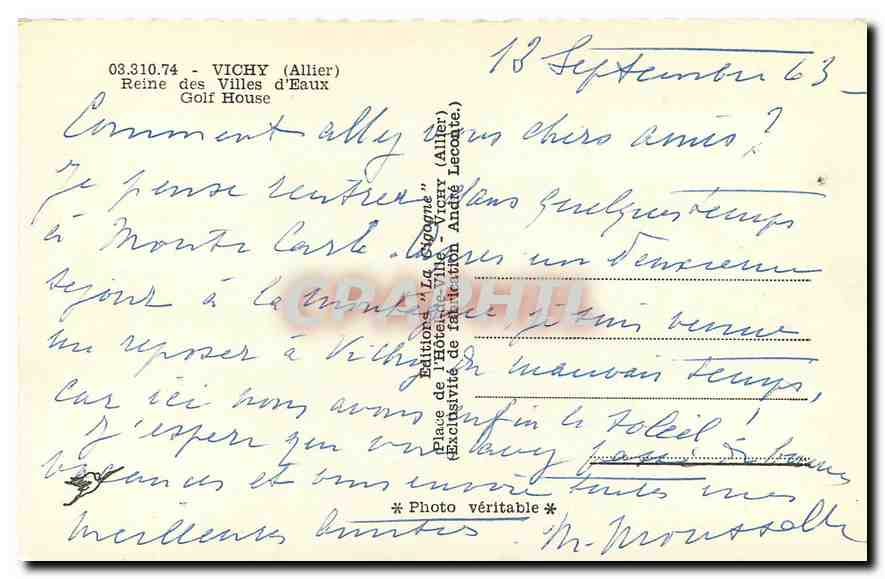 03.310.74 - VICHY (Allier)
Reine des Villes d'Eaux
Golf House
13 Septembre 63
Comment allez vous chers amis?
Je pense rentrer dans quelques temps
à Monte Carlo. Après un deuxième
séjour à la montagne je suis venue
me reposer à Vichy du mauvais temps,
car ici nous avons enfin le soleil!
J'espère que vous avez passé de bonnes
vacances et vous envoie toutes mes
meilleures amitiés
Editions "La Cigogne"
Place de l'Hôtel-de-Ville - VICHY (Allier)
(Exclusivité de fabrication André Leconte.)
CPAPHIL
* Photo véritable *